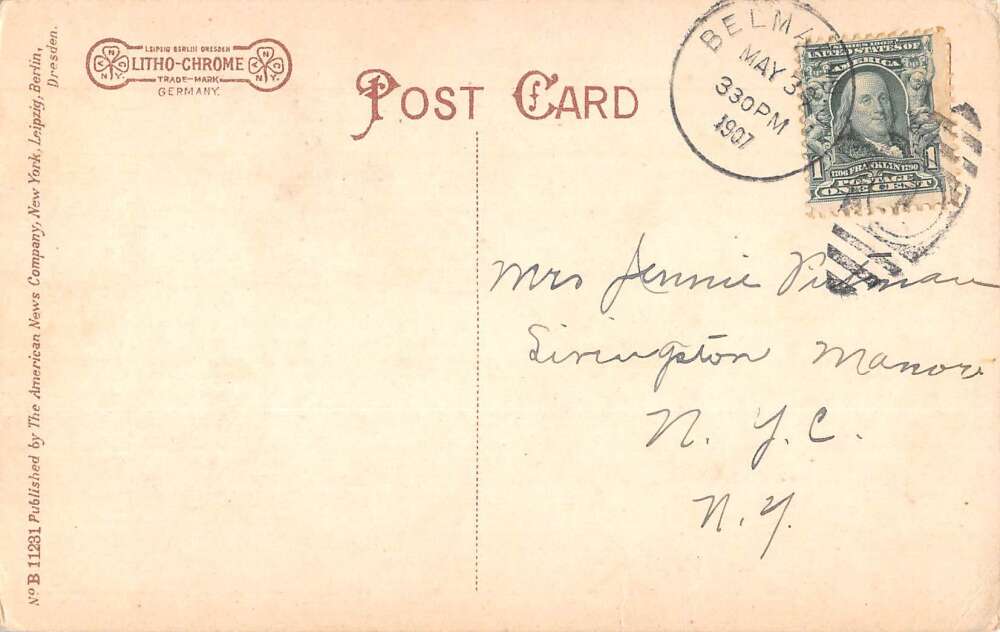 LEIPZIG BERLIN DRESDEN
LITHO-CHROME
TRADE-MARK
GERMANY.
POST CARD
BELMAR
MAY 3
330PM
1907
SERIES 1902
UNITED STATES OF
AMERICA
1 1706 FRANKLIN 1790 1
POSTAGE
ONE CENT
Mrs Jennie Pitman
Livingston Manor
N. Y. C.
N.Y.
No B 11231 Published by The American News Company, New York, Leipzig, Berlin,
Dresden.